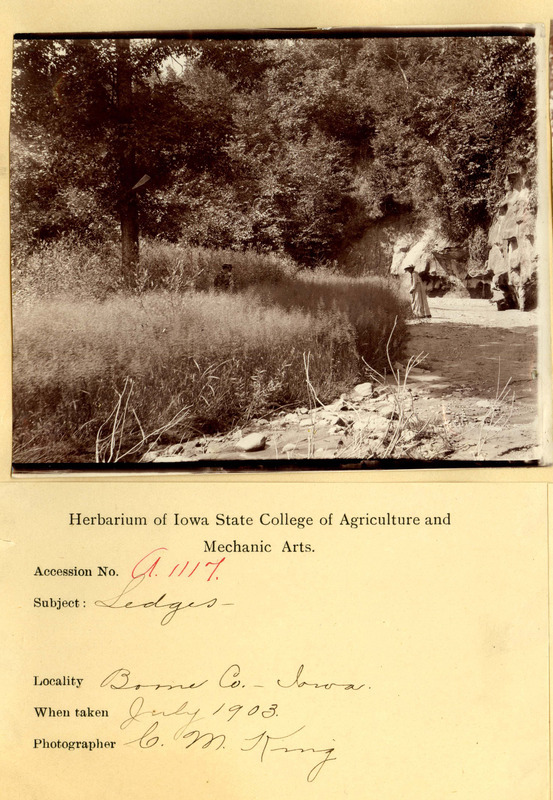 Herbarium of Iowa State College of Agriculture and
Mechanic Arts.
Accession No. A. 1117.
Subject: Ledges-
Locality Boone Co. - Iowa.
When taken July 1903.
Photographer C. M. King